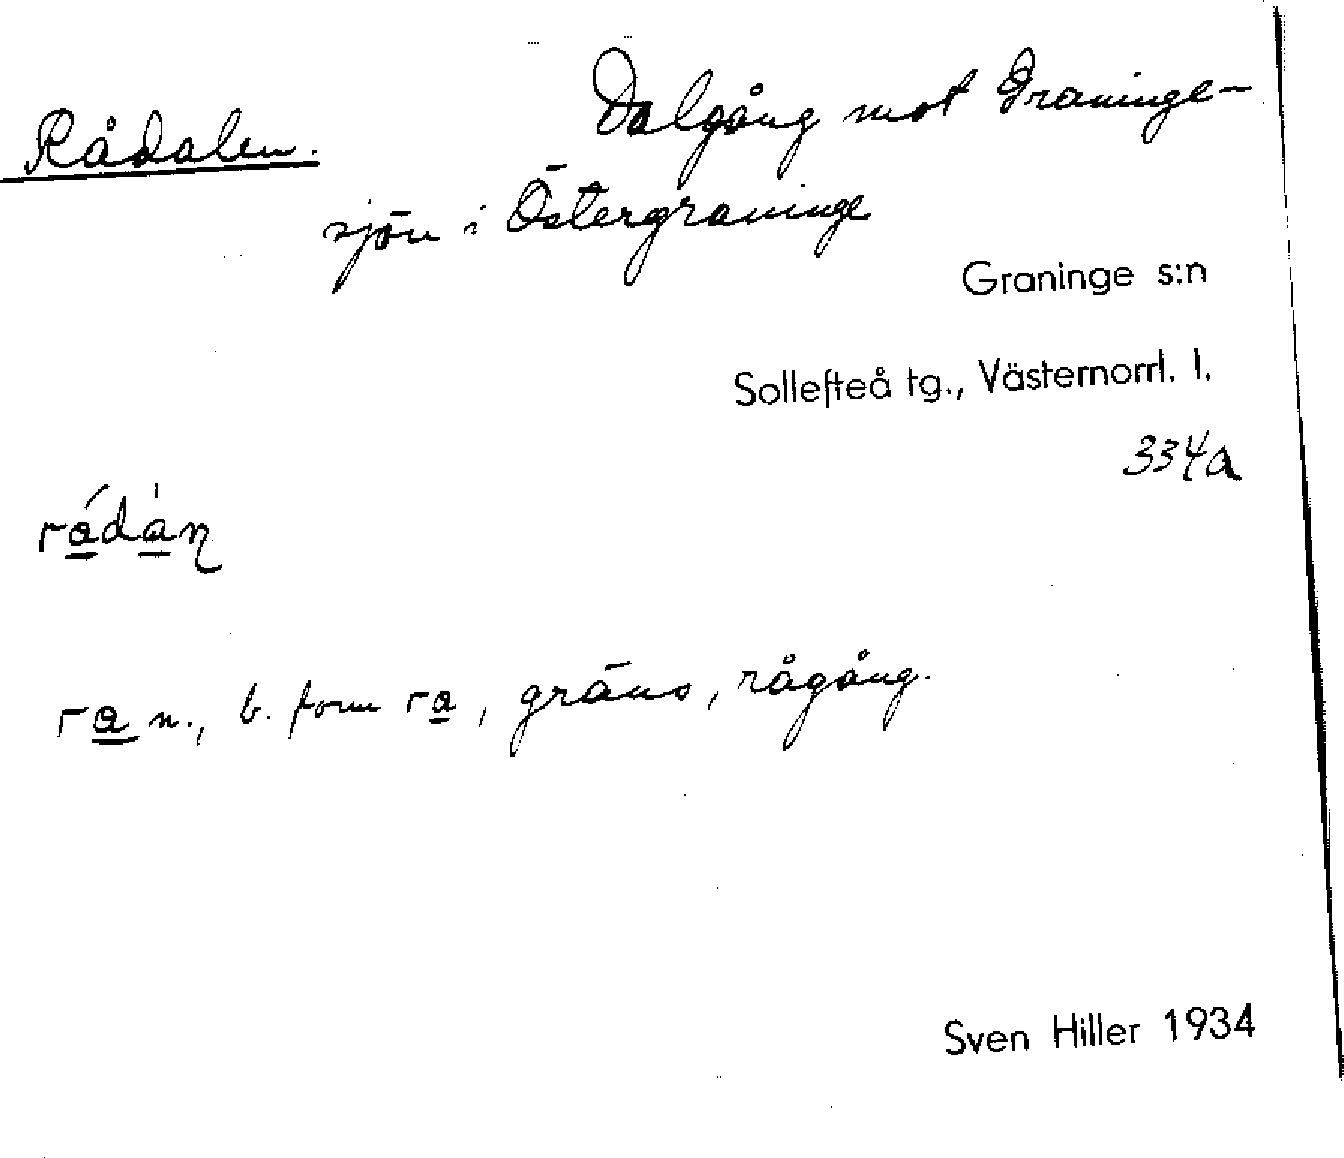 Rådalen. Dalgång mot Graninge-
sjön i Östergraninge
Graninge s:n
Sollefteå tg., Västernorrl. l.
334a
rádàn
ra n., b. form ra, gräns, rågång.
Sven Hiller 1934